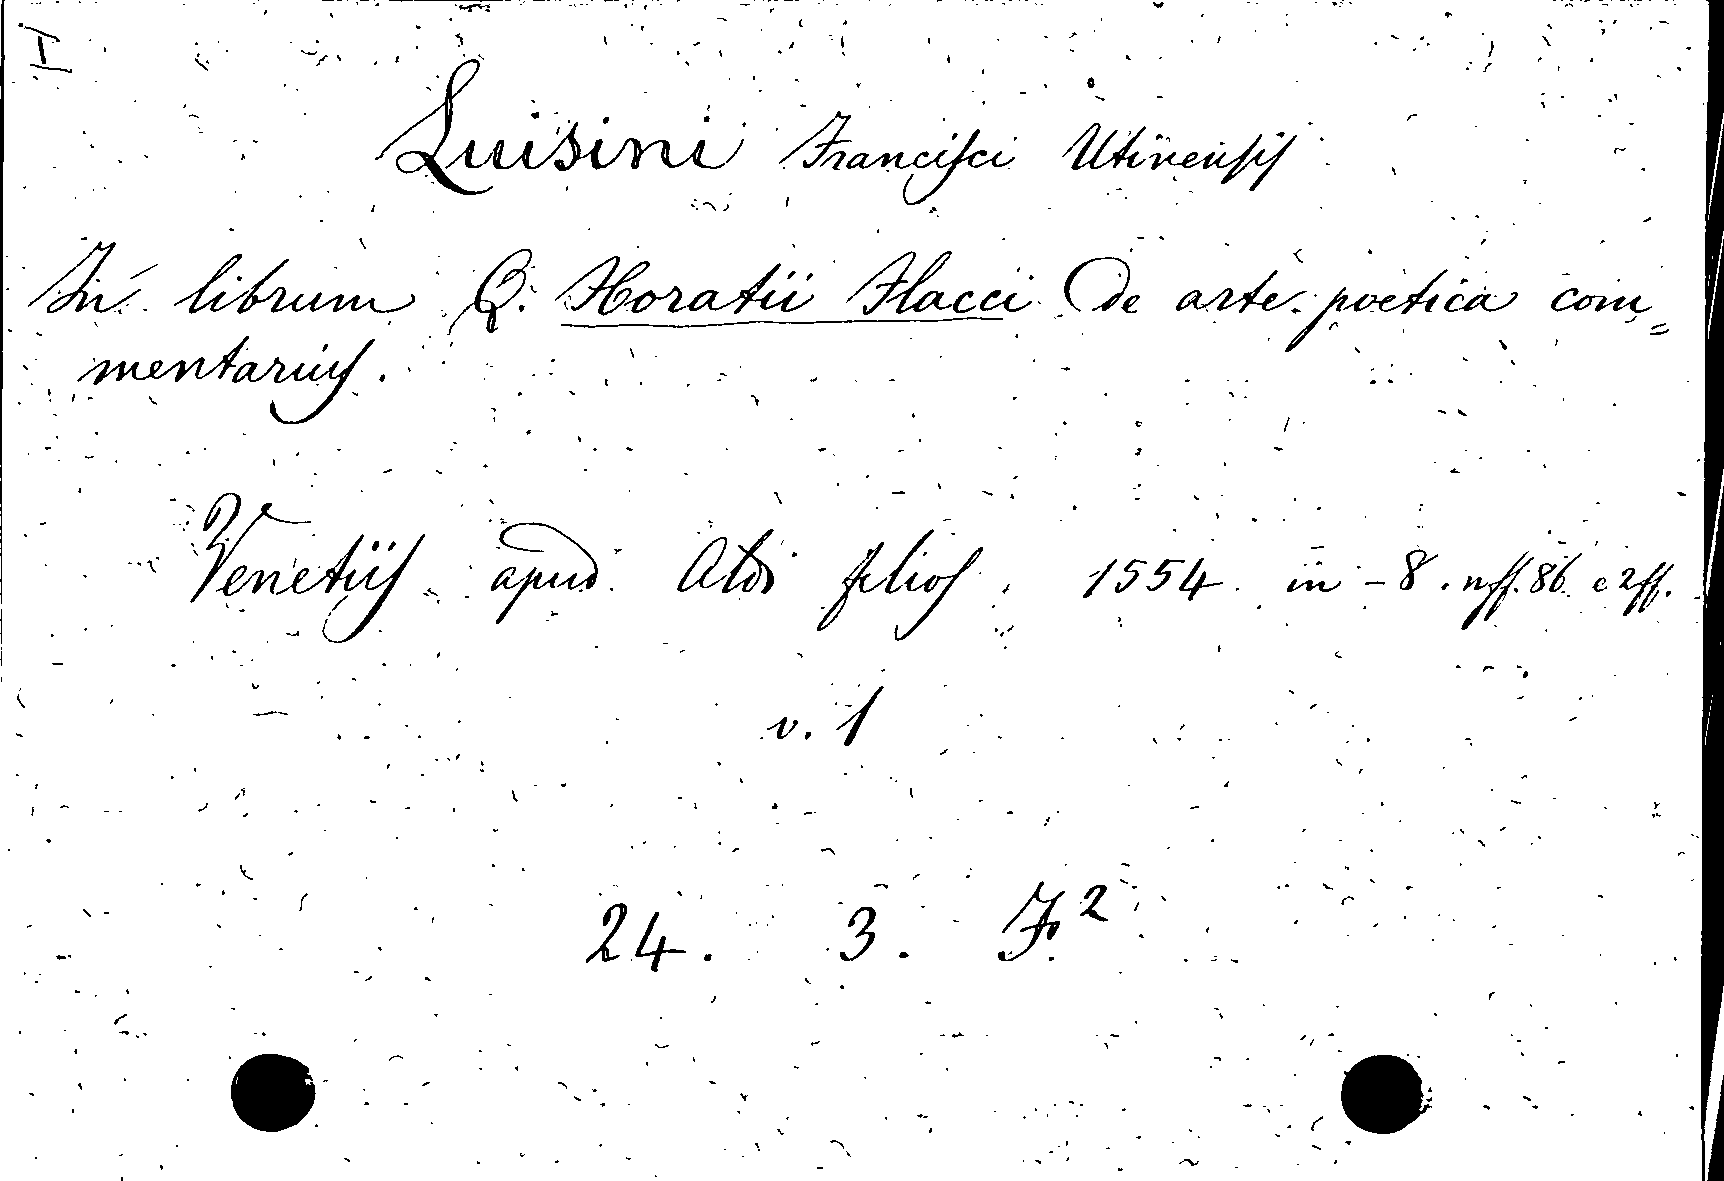 H
Luisini Francisci Utinensis
In librum Q. Horatii Flacci De arte poetica com=
mentarius.
Venetiis apud Aldi filios, 1554 in-8. nff. 86 e 2ff.
v. 1
24. 3. F.2